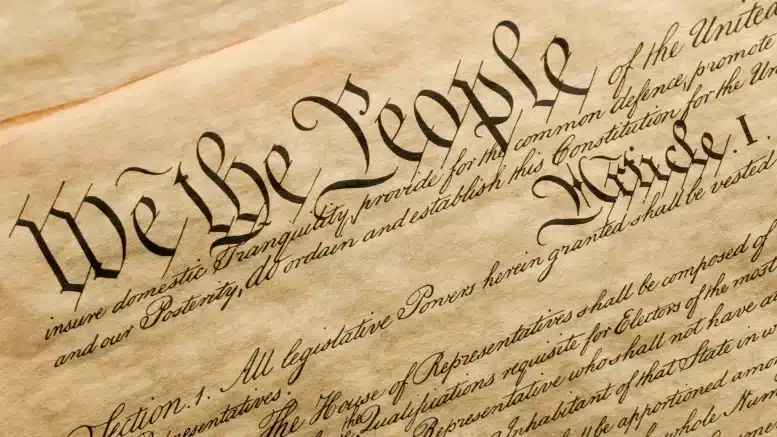 We the People of the United
insure domestic Tranquility, provide for the common defence, promote
and our Posterity, do ordain and establish this Constitution for the Un
Article. I.
Section. 1. All legislative Powers herein granted shall be vested
Representatives.
The House of Representatives shall be composed of
the Qualifications requisite for Electors of the most
Representative who shall not have a
Inhabitant of that State in w
be apportioned amo
whole Num